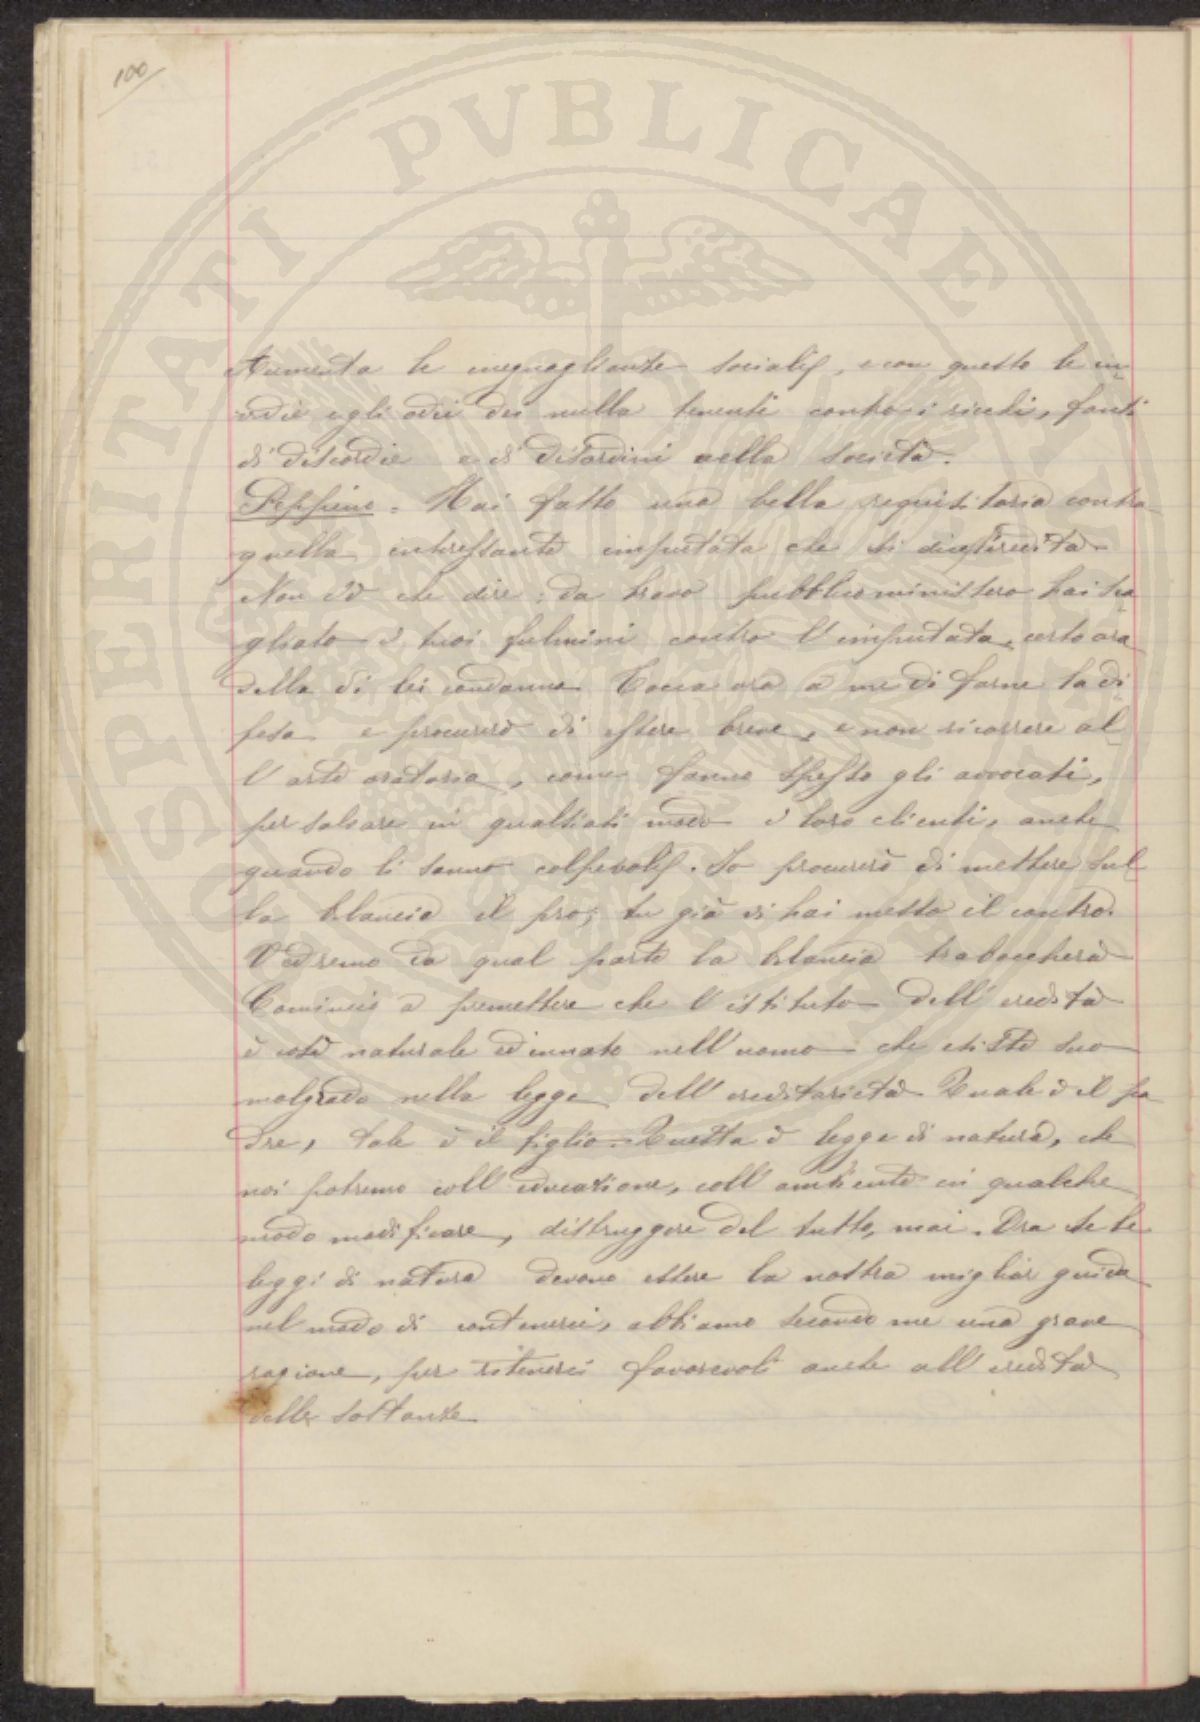 100
PROSPERITATI PVBLICAE
Aumenta le ineguaglianze sociali, e con questo le in
vidie e gli odii dei nulla tenenti contro i ricchi, fonti
di discordie e di disordini nella società.
Peppino = Hai fatto una bella requisitoria contro
quella interessante imputata che si dice eredità
Non v'è che dire: da bravo pubblico ministero hai sca
gliato i tuoi fulmini contro l'imputata, certo ora
della di lei condanna. Tocca ora a me di farne la di
fesa e procurerò di essere breve, e non ricorrere al
l'arte oratoria, come fanno spesso gli avvocati,
per salvare in qualsiasi modo i loro clienti, anche
quando li sanno colpevoli. Io procurerò di mettere sul
la bilancia il pro; tu già vi hai messo il contro.
Vedremo da qual parte la bilancia traboccherà
Comincio a premettere che l'istituto dell'eredità
è così naturale ed innato nell'uomo che esiste suo
malgrado nella legge dell'ereditarietà. Quale è il pa
dre, tale è il figlio. Questa è legge di natura, che
noi potremo coll'educazione, coll'ambiente in qualche
modo modificare, distruggere del tutto, mai. Ora se le
leggi di natura devono essere la nostra miglior guida
nel modo di contenerci, abbiamo secondo me una grave
ragione, per ritenerci favorevoli anche all'eredità
delle sostanze